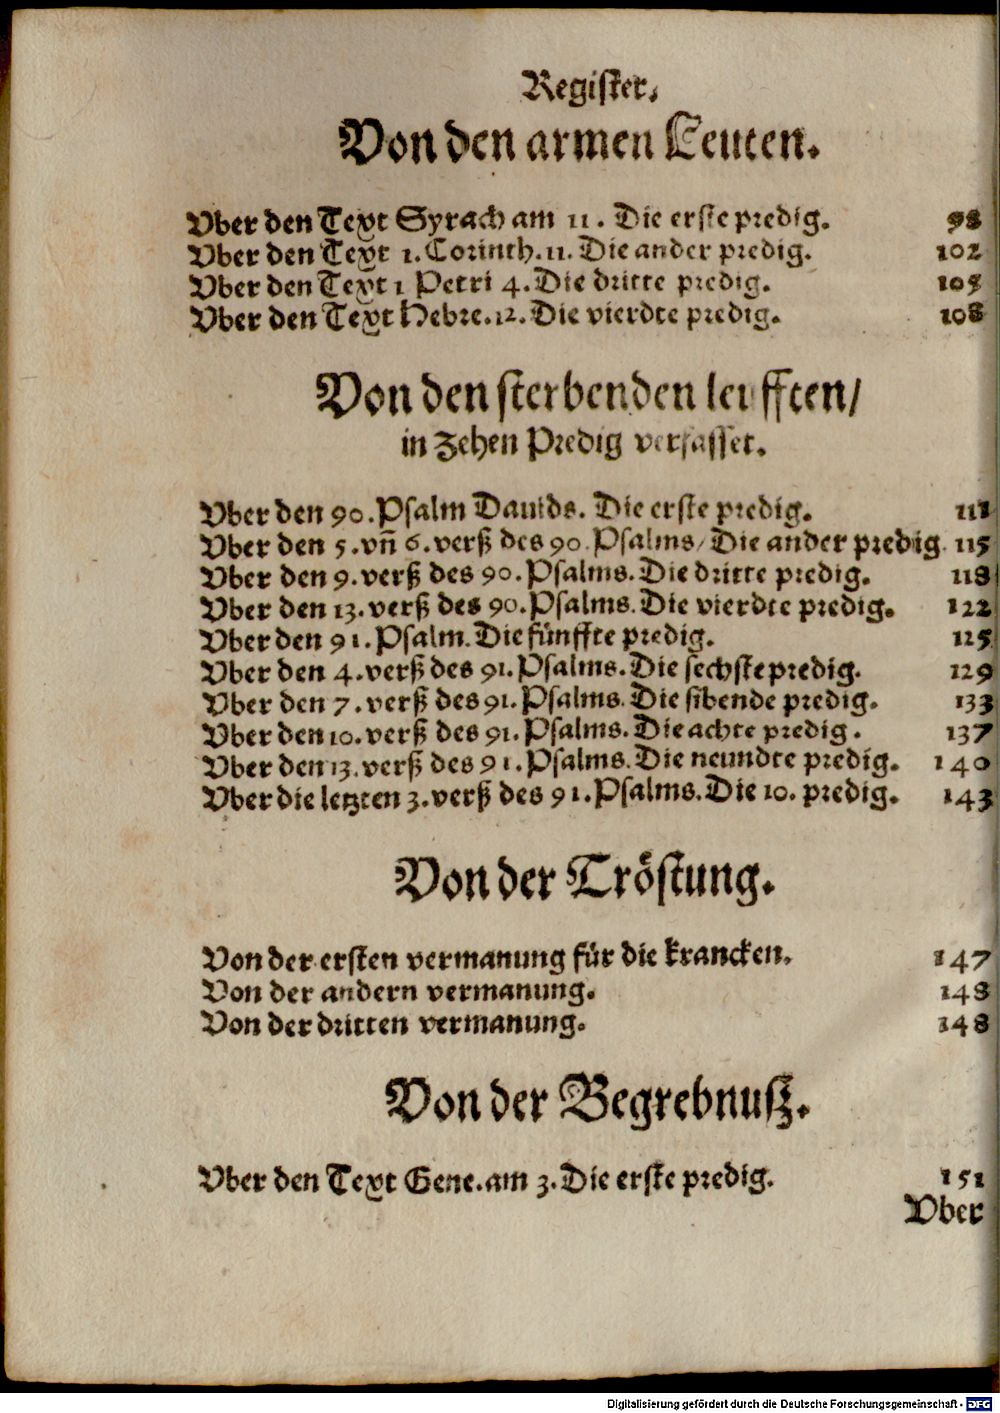 Register.
Von den armen Leuten.
Vber den Text Syrach am 11. Die erste predig. 98
Vber den Text 1. Corinth. 11. Die ander predig. 102
Vber den Text 1 Petri 4. Die dritte predig. 105
Vber den Text Hebre. 12. Die vierdte predig. 108
Von den sterbenden leufften/
in zehen Predig verfasset.
Vber den 90. Psalm Dauids. Die erste predig. 111
Vber den 5. vñ 6. verß des 90 Psalms/ Die ander predig. 115
Vber den 9. verß des 90. Psalms. Die dritte predig. 118
Vber den 13. verß des 90. Psalms. Die vierdte predig. 122
Vber den 91. Psalm. Die fünffte predig. 125
Vber den 4. verß des 91. Psalms. Die sechste predig. 129
Vber den 7. verß des 91. Psalms. Die sibende predig. 133
Vber den 10. verß des 91. Psalms. Die achte predig. 137
Vber den 13. verß des 91. Psalms. Die neundte predig. 140
Vber die letzten 3. verß des 91. Psalms. Die 10. predig. 143
Von der Tröstung.
Von der ersten vermanung für die krancken. 147
Von der andern vermanung. 148
Von der dritten vermanung. 148
Von der Begrebnuß.
Vber den Text Gene. am 3. Die erste predig. 151
Vber
Digitalisierung gefördert durch die Deutsche Forschungsgemeinschaft - DFG